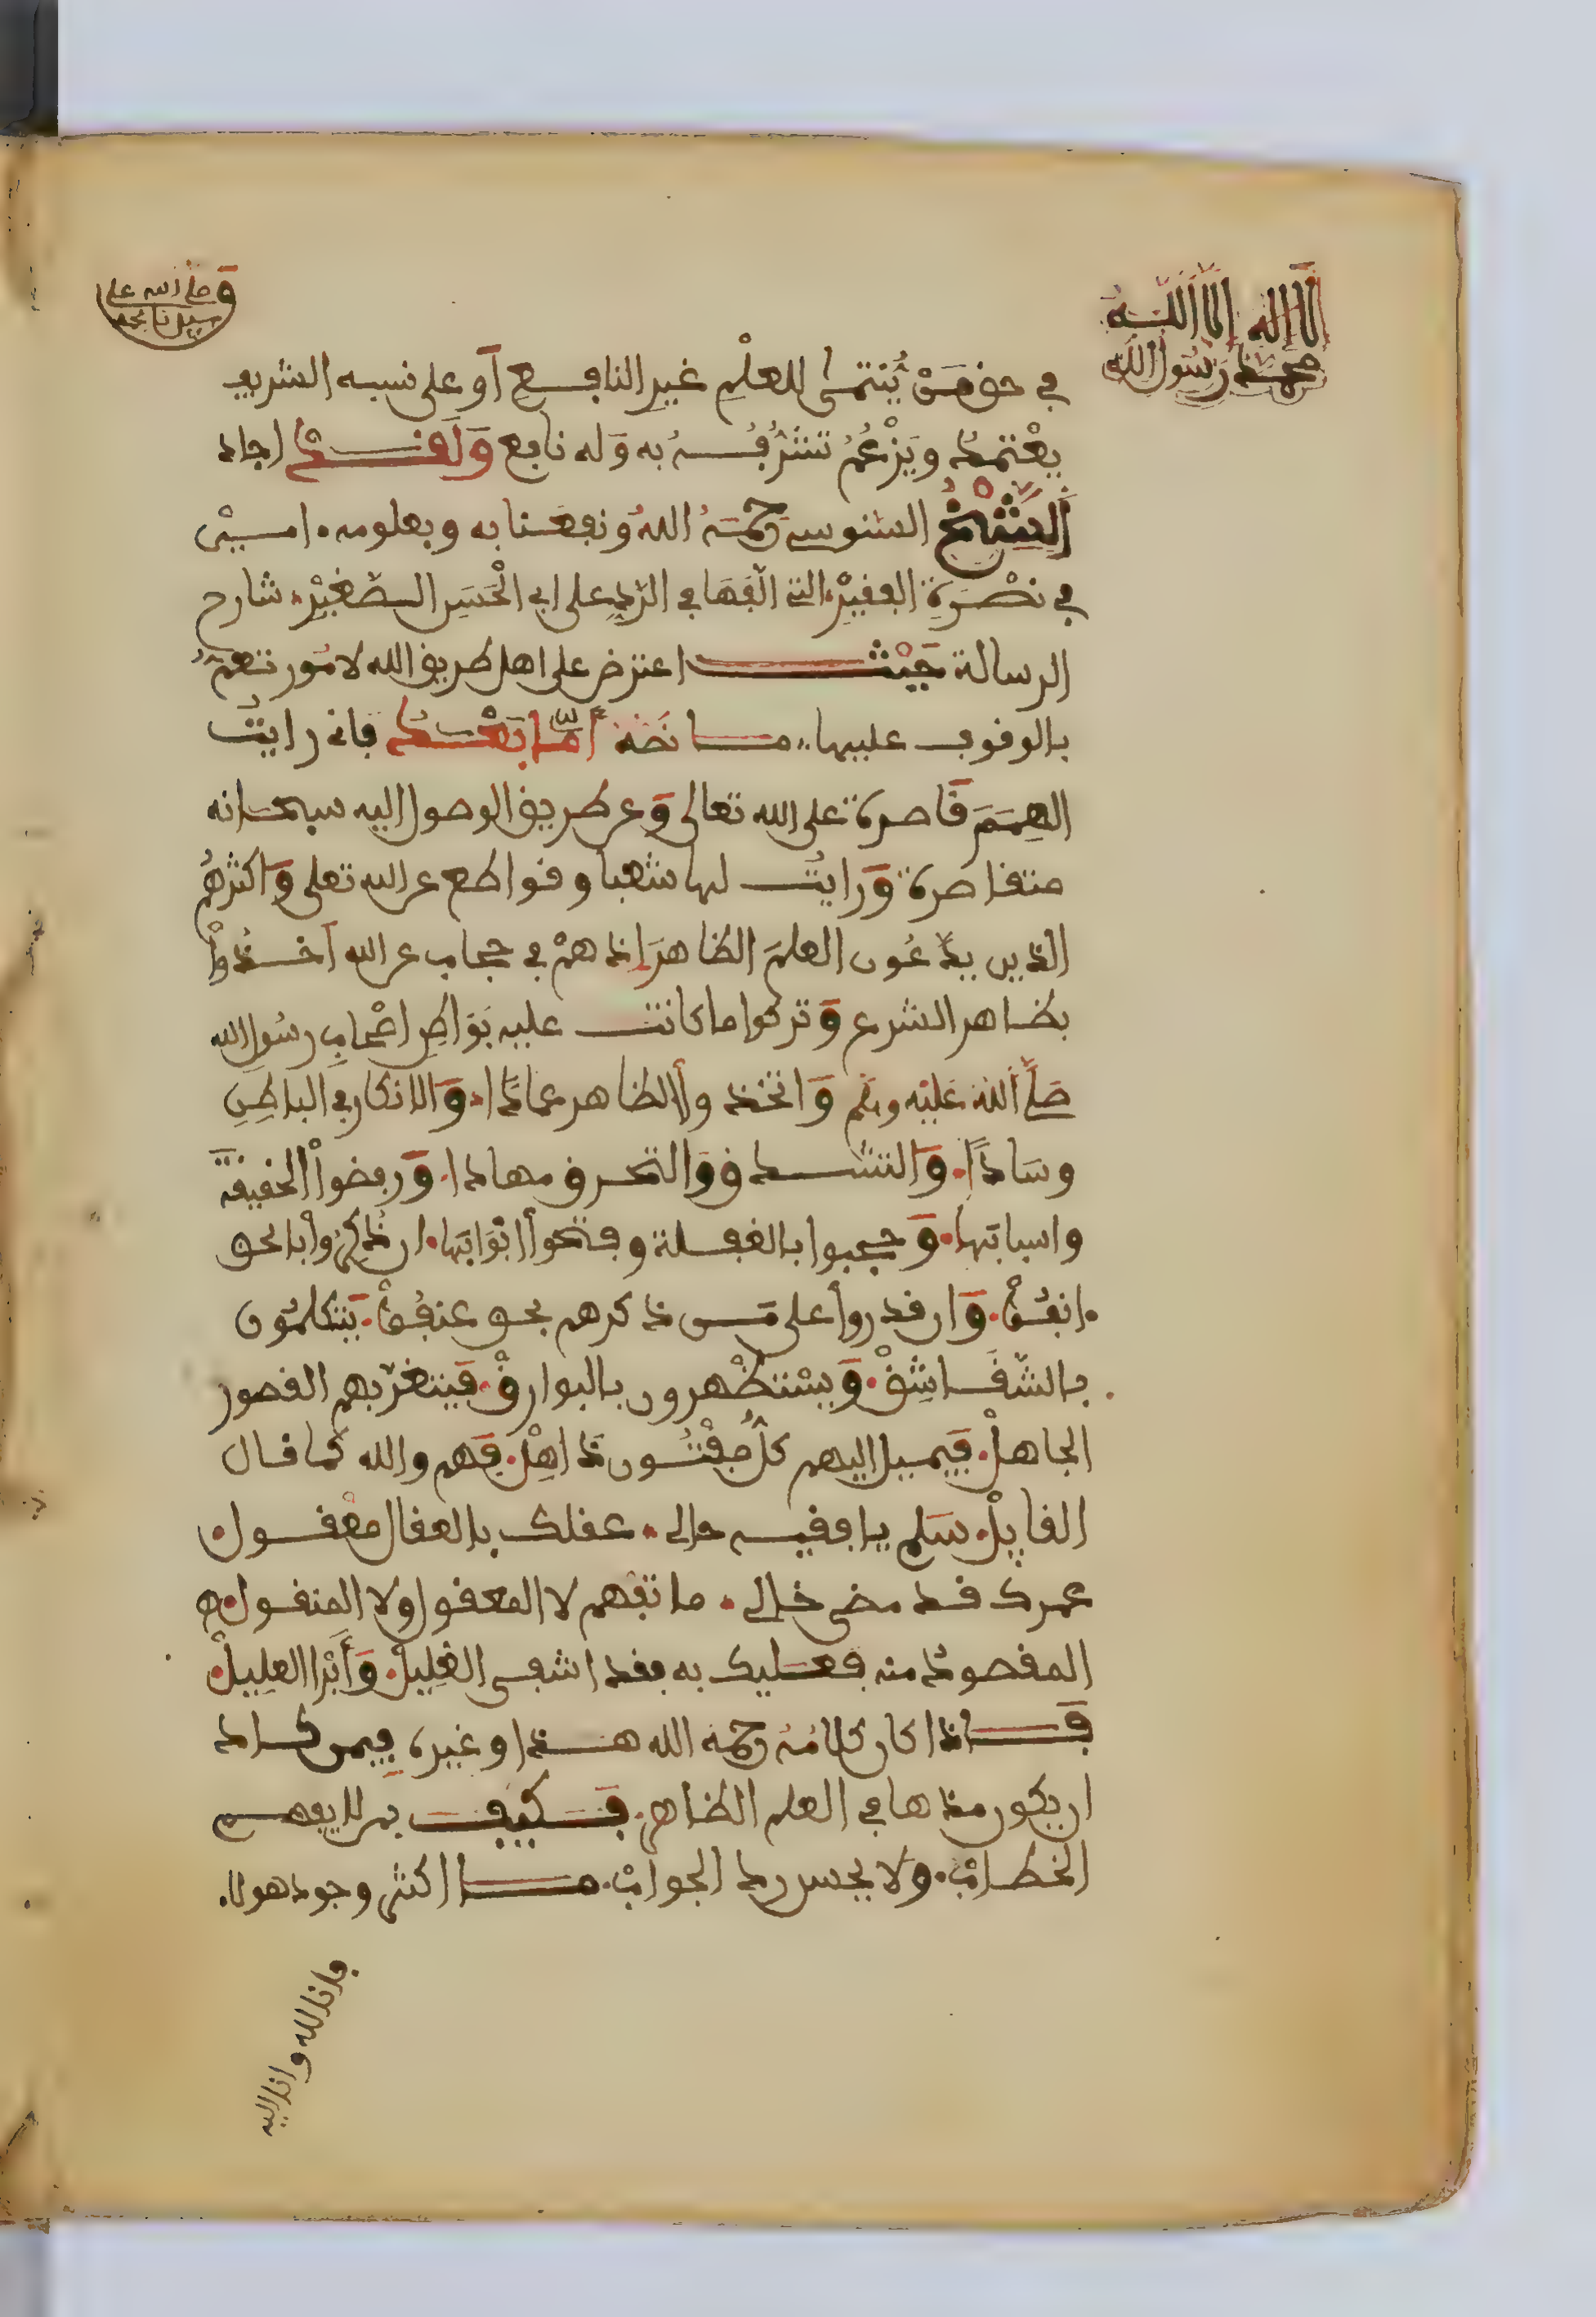 لا اله الا الله
محمد رسول الله
وصلى الله على
سيدنا محمد
في حق من ينتمى للعلم غير النافع أو على نسبه الشريف
يعتمد ويزعم تشرفه به وله نافع ولقد اجاد
الشيخ السنوسي رحمه الله ونفعنا به وبعلومه. امين
في نصرة الفقير. التي الفها في الرد على ابي الحسن الصغير. شارح
الرسالة حيث اعترض على اهل طريق الله لامور
بالوقوف عليها،، ما نصه أما بعد فاني رايت
الهمم قاصرة على الله تعالى وعن طريق الوصول اليه سبحانه
متقاصرة ورايت لها شعبا وقواطع عن الله تعلى واكثرهم
الذين يدعون العلم الظاهر إذ هم في حجاب عن الله اخذوا
بظاهر الشرع وتركوا ما كانت عليه بواطن اصحاب رسول الله
صلى الله عليه وسلم واتخذوا الظاهر عمادا. والانكار في الباطن
وسادا. والتشدق والتحرق مهادا. ورفضوا الحقيقة
واسبابها. وحجبوا بالغفلة وفتحوا ابوابها. ان ذكروا بالحق
انفق. وان قدروا على من ذكرهم بحق عنفق. يتكلمون
بالشقاشق. ويستظهرون بالبوارق. فيتغر بهم القصور
الجاهل. فيميل اليهم كل مفتون ذاهل. فهم والله كما قال
القايل. سلم يا فقيه حالي. عقلك بالعقال معقول.
عمرك قد مضى خالي. ما تفهم لا المعقول ولا المنقول. ه
المقصود منه فعليك به فقد اشفى الغليل. وأبرا العليل.
فاذا كان كلامه رحمه الله هذا وغيره فيمن كاد
ان يكون مذاهبا في العلم الظاهر. فكيف بمن لا يفهم
الخطاب. ولا يحسن رد الجواب. ما اكثر وجود هولا.
فانا لله وانا اليه